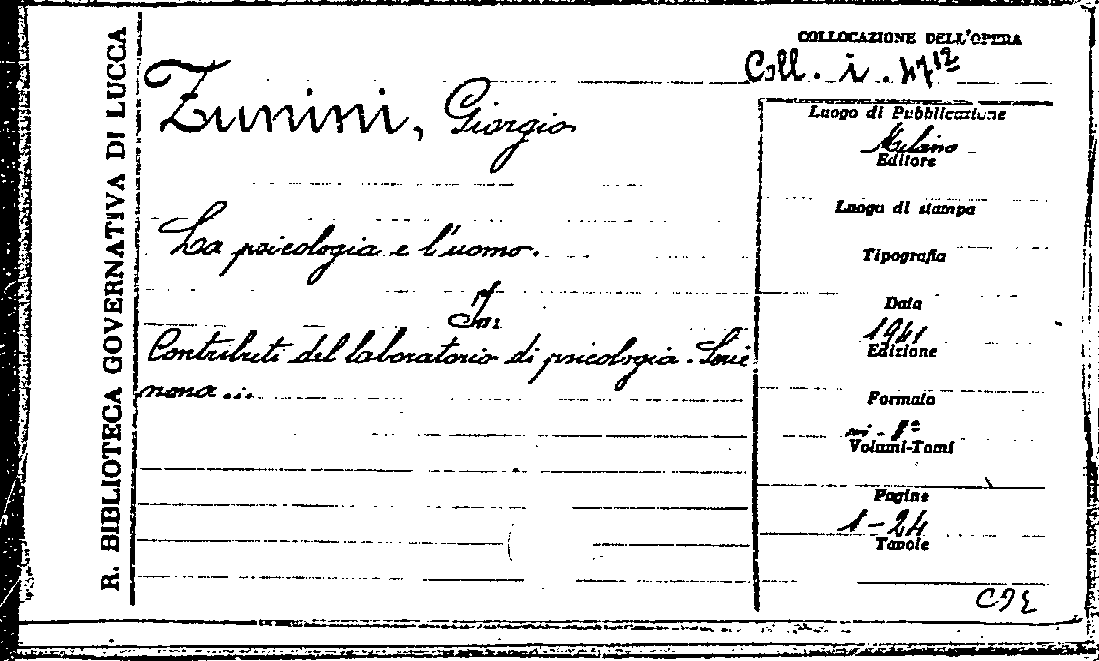 R. BIBLIOTECA GOVERNATIVA DI LUCCA
COLLOCAZIONE DELL'OPERA
Coll. i. 47¹²
Zunini, Giorgio
La psicologia e l'uomo.
In
Contributi del laboratorio di psicologia. Serie
nona...
Luogo di Pubblicazione
Milano
Editore
Luogo di stampa
Tipografia
Data
1941
Edizione
Formato
in-8º
Volumi-Tomi
Pagine
1-24
Tavole